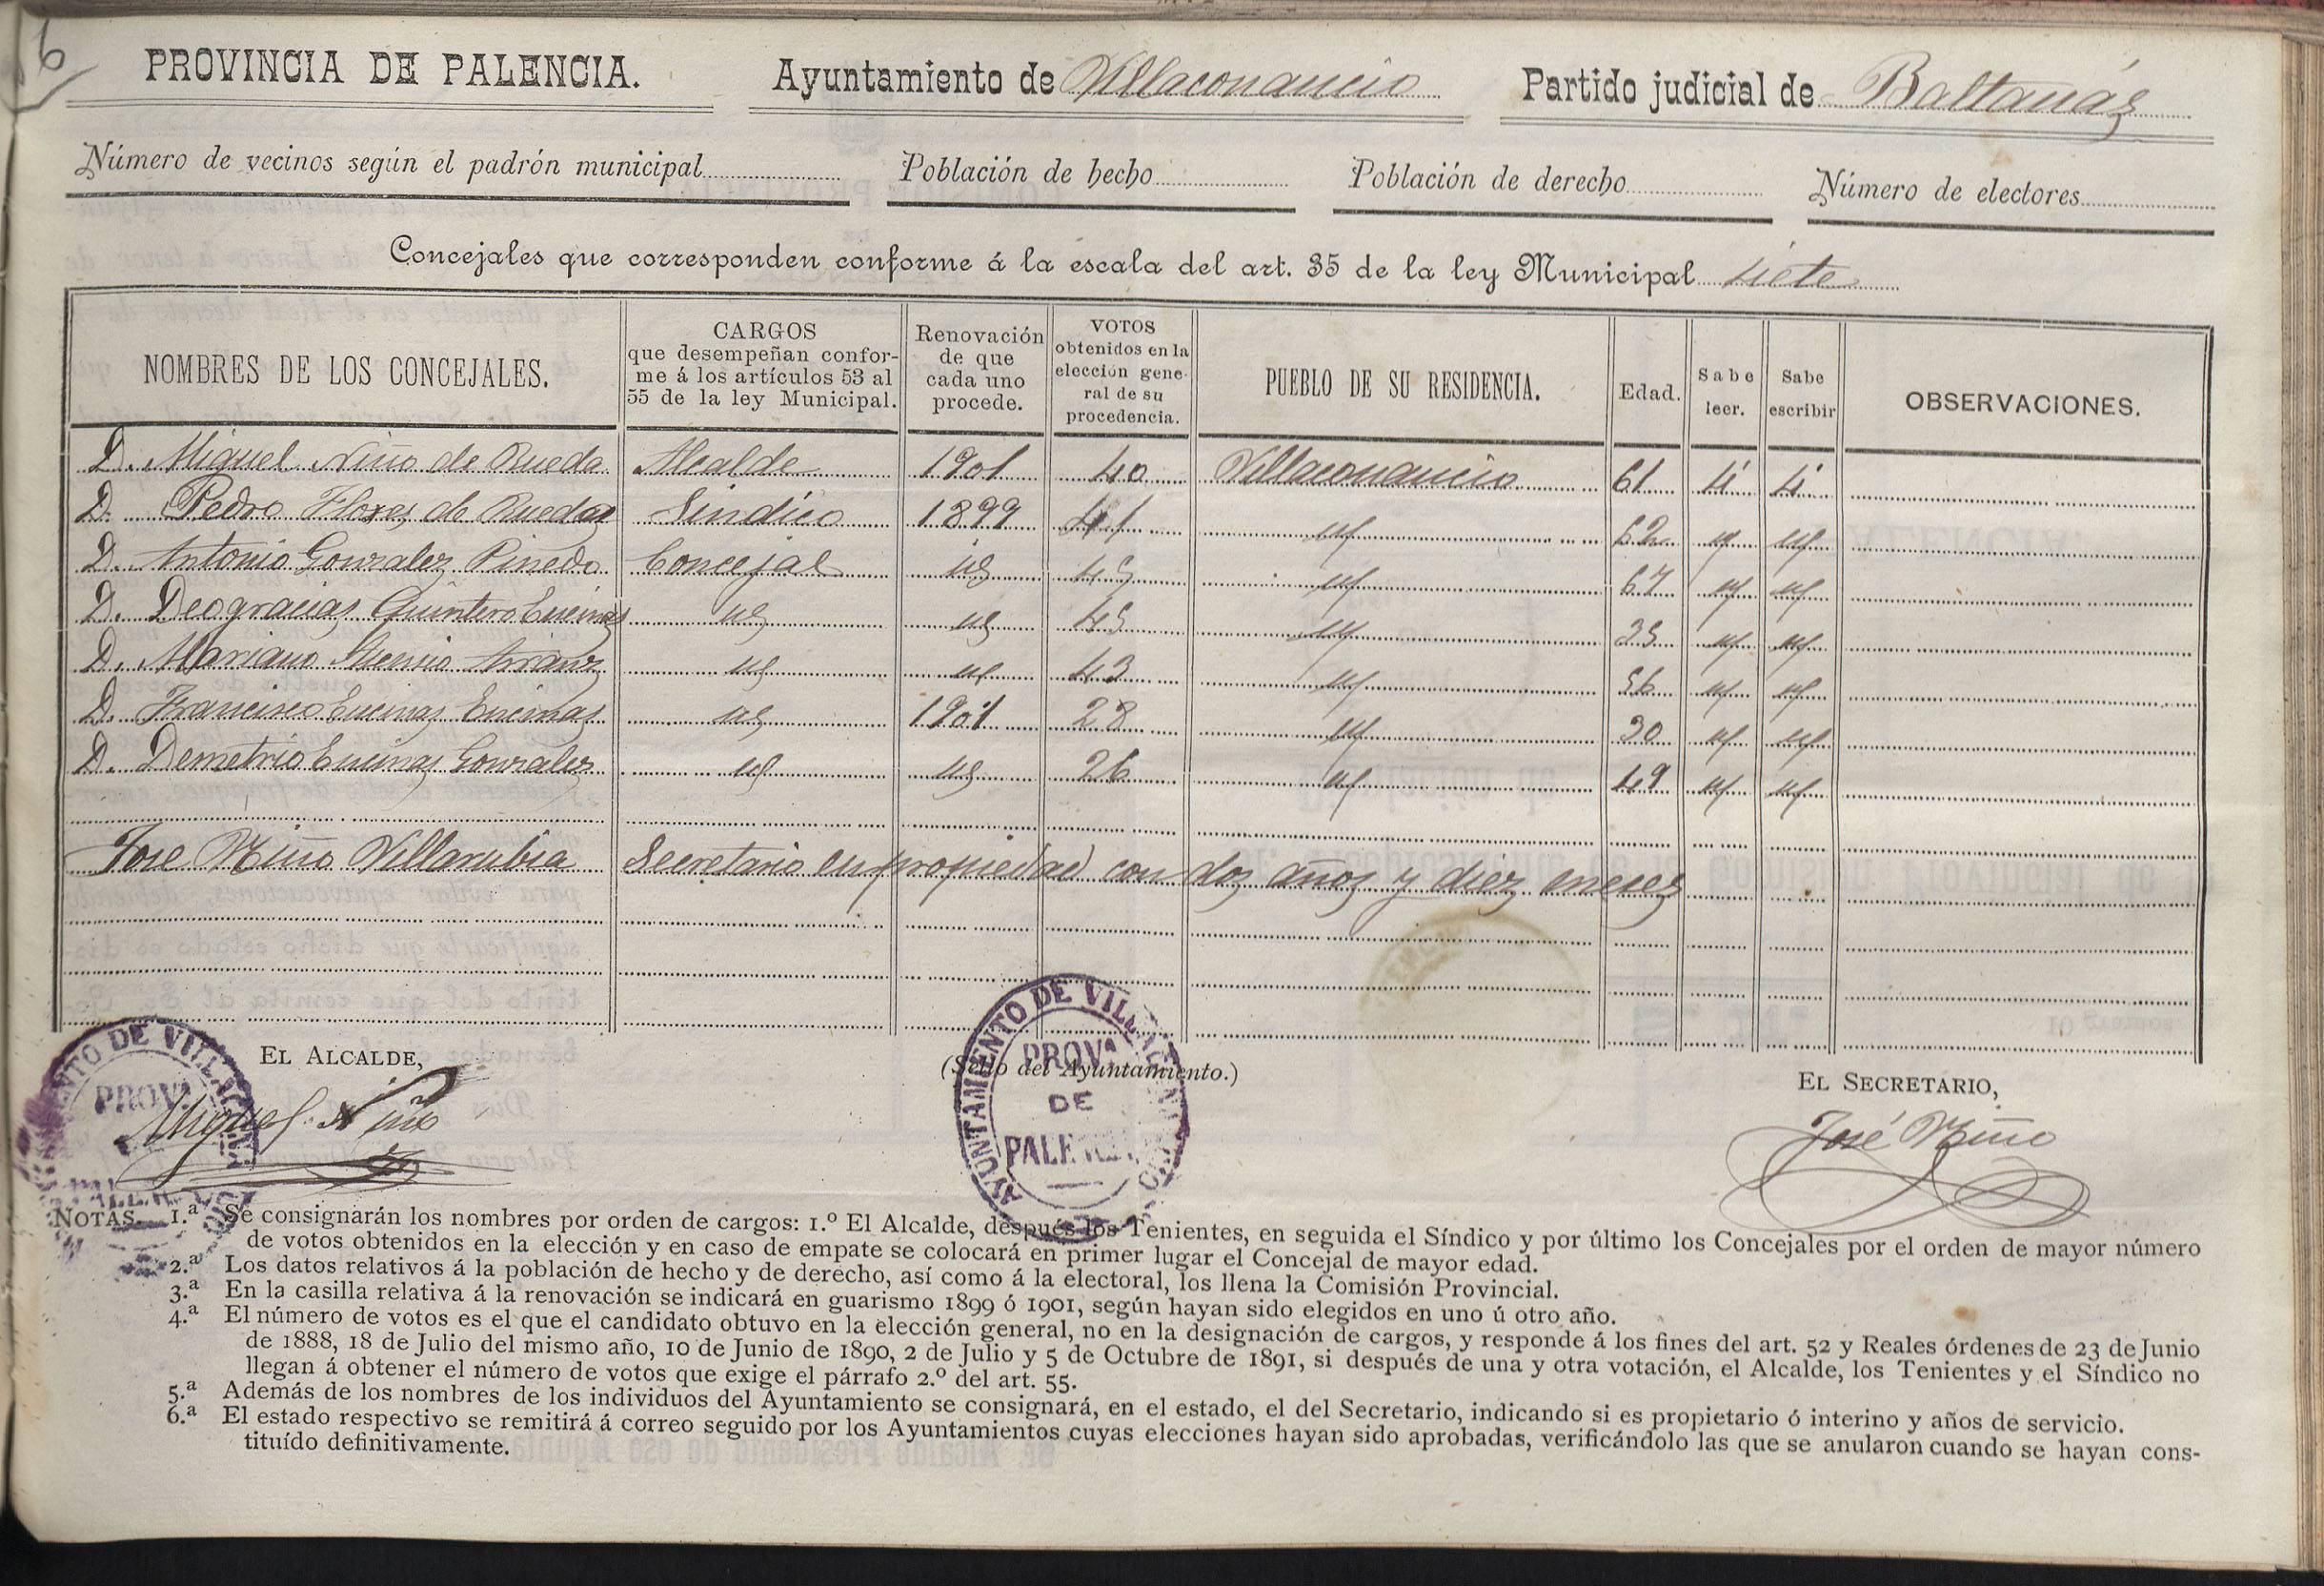 6
PROVINCIA DE PALENCIA. Ayuntamiento de Villaconancio Partido judicial de Baltanás
Número de vecinos según el padrón municipal Población de hecho Población de derecho Número de electores
Concejales que corresponden conforme á la escala del art. 35 de la ley Municipal siete
NOMBRES DE LOS CONCEJALES. CARGOS que desempeñan conforme á los artículos 53 al 55 de la ley Municipal. Renovación de que cada uno procede. VOTOS obtenidos en la elección general de su procedencia. PUEBLO DE SU RESIDENCIA. Edad. Sabe leer. Sabe escribir OBSERVACIONES.
D. Miguel Niño de Rueda Alcalde 1901 40 Villaconancio 61 si si
D. Pedro Flores de Ruedas Sindico 1899 41 id 62 id id
D. Antonio Gonzalez Pinedo Concejal id 45 id 67 id id
D. Deogracias Quintero Encinas id id 45 id 35 id id
D. Mariano Arranz id id 43 id 56 id id
D. Francisco Encinas Encinas id 1901 28 id 30 id id
D. Demetrio Encinas Gonzalez id id 26 id 49 id id
Jose Niño Villarubia Secretario en propiedad con dos años y diez meses
EL ALCALDE, (Sello del Ayuntamiento.) EL SECRETARIO,
AYUNTAMIENTO DE VILLACONANCIO
PROVA DE PALENCIA
Miguel Niño José Niño
NOTAS. 1.ª Se consignarán los nombres por orden de cargos: 1.º El Alcalde, después los Tenientes, en seguida el Síndico y por último los Concejales por el orden de mayor número
de votos obtenidos en la elección y en caso de empate se colocará en primer lugar el Concejal de mayor edad.
2.ª Los datos relativos á la población de hecho y de derecho, así como á la electoral, los llena la Comisión Provincial.
3.ª En la casilla relativa á la renovación se indicará en guarismo 1899 ó 1901, según hayan sido elegidos en uno ú otro año.
4.ª El número de votos es el que el candidato obtuvo en la elección general, no en la designación de cargos, y responde á los fines del art. 52 y Reales órdenes de 23 de Junio
de 1888, 18 de Julio del mismo año, 10 de Junio de 1890, 2 de Julio y 5 de Octubre de 1891, si después de una y otra votación, el Alcalde, los Tenientes y el Síndico no
llegan á obtener el número de votos que exige el párrafo 2.º del art. 55.
5.ª Además de los nombres de los individuos del Ayuntamiento se consignará, en el estado, el del Secretario, indicando si es propietario ó interino y años de servicio.
6.ª El estado respectivo se remitirá á correo seguido por los Ayuntamientos cuyas elecciones hayan sido aprobadas, verificándolo las que se anularon cuando se hayan cons-
tituído definitivamente.